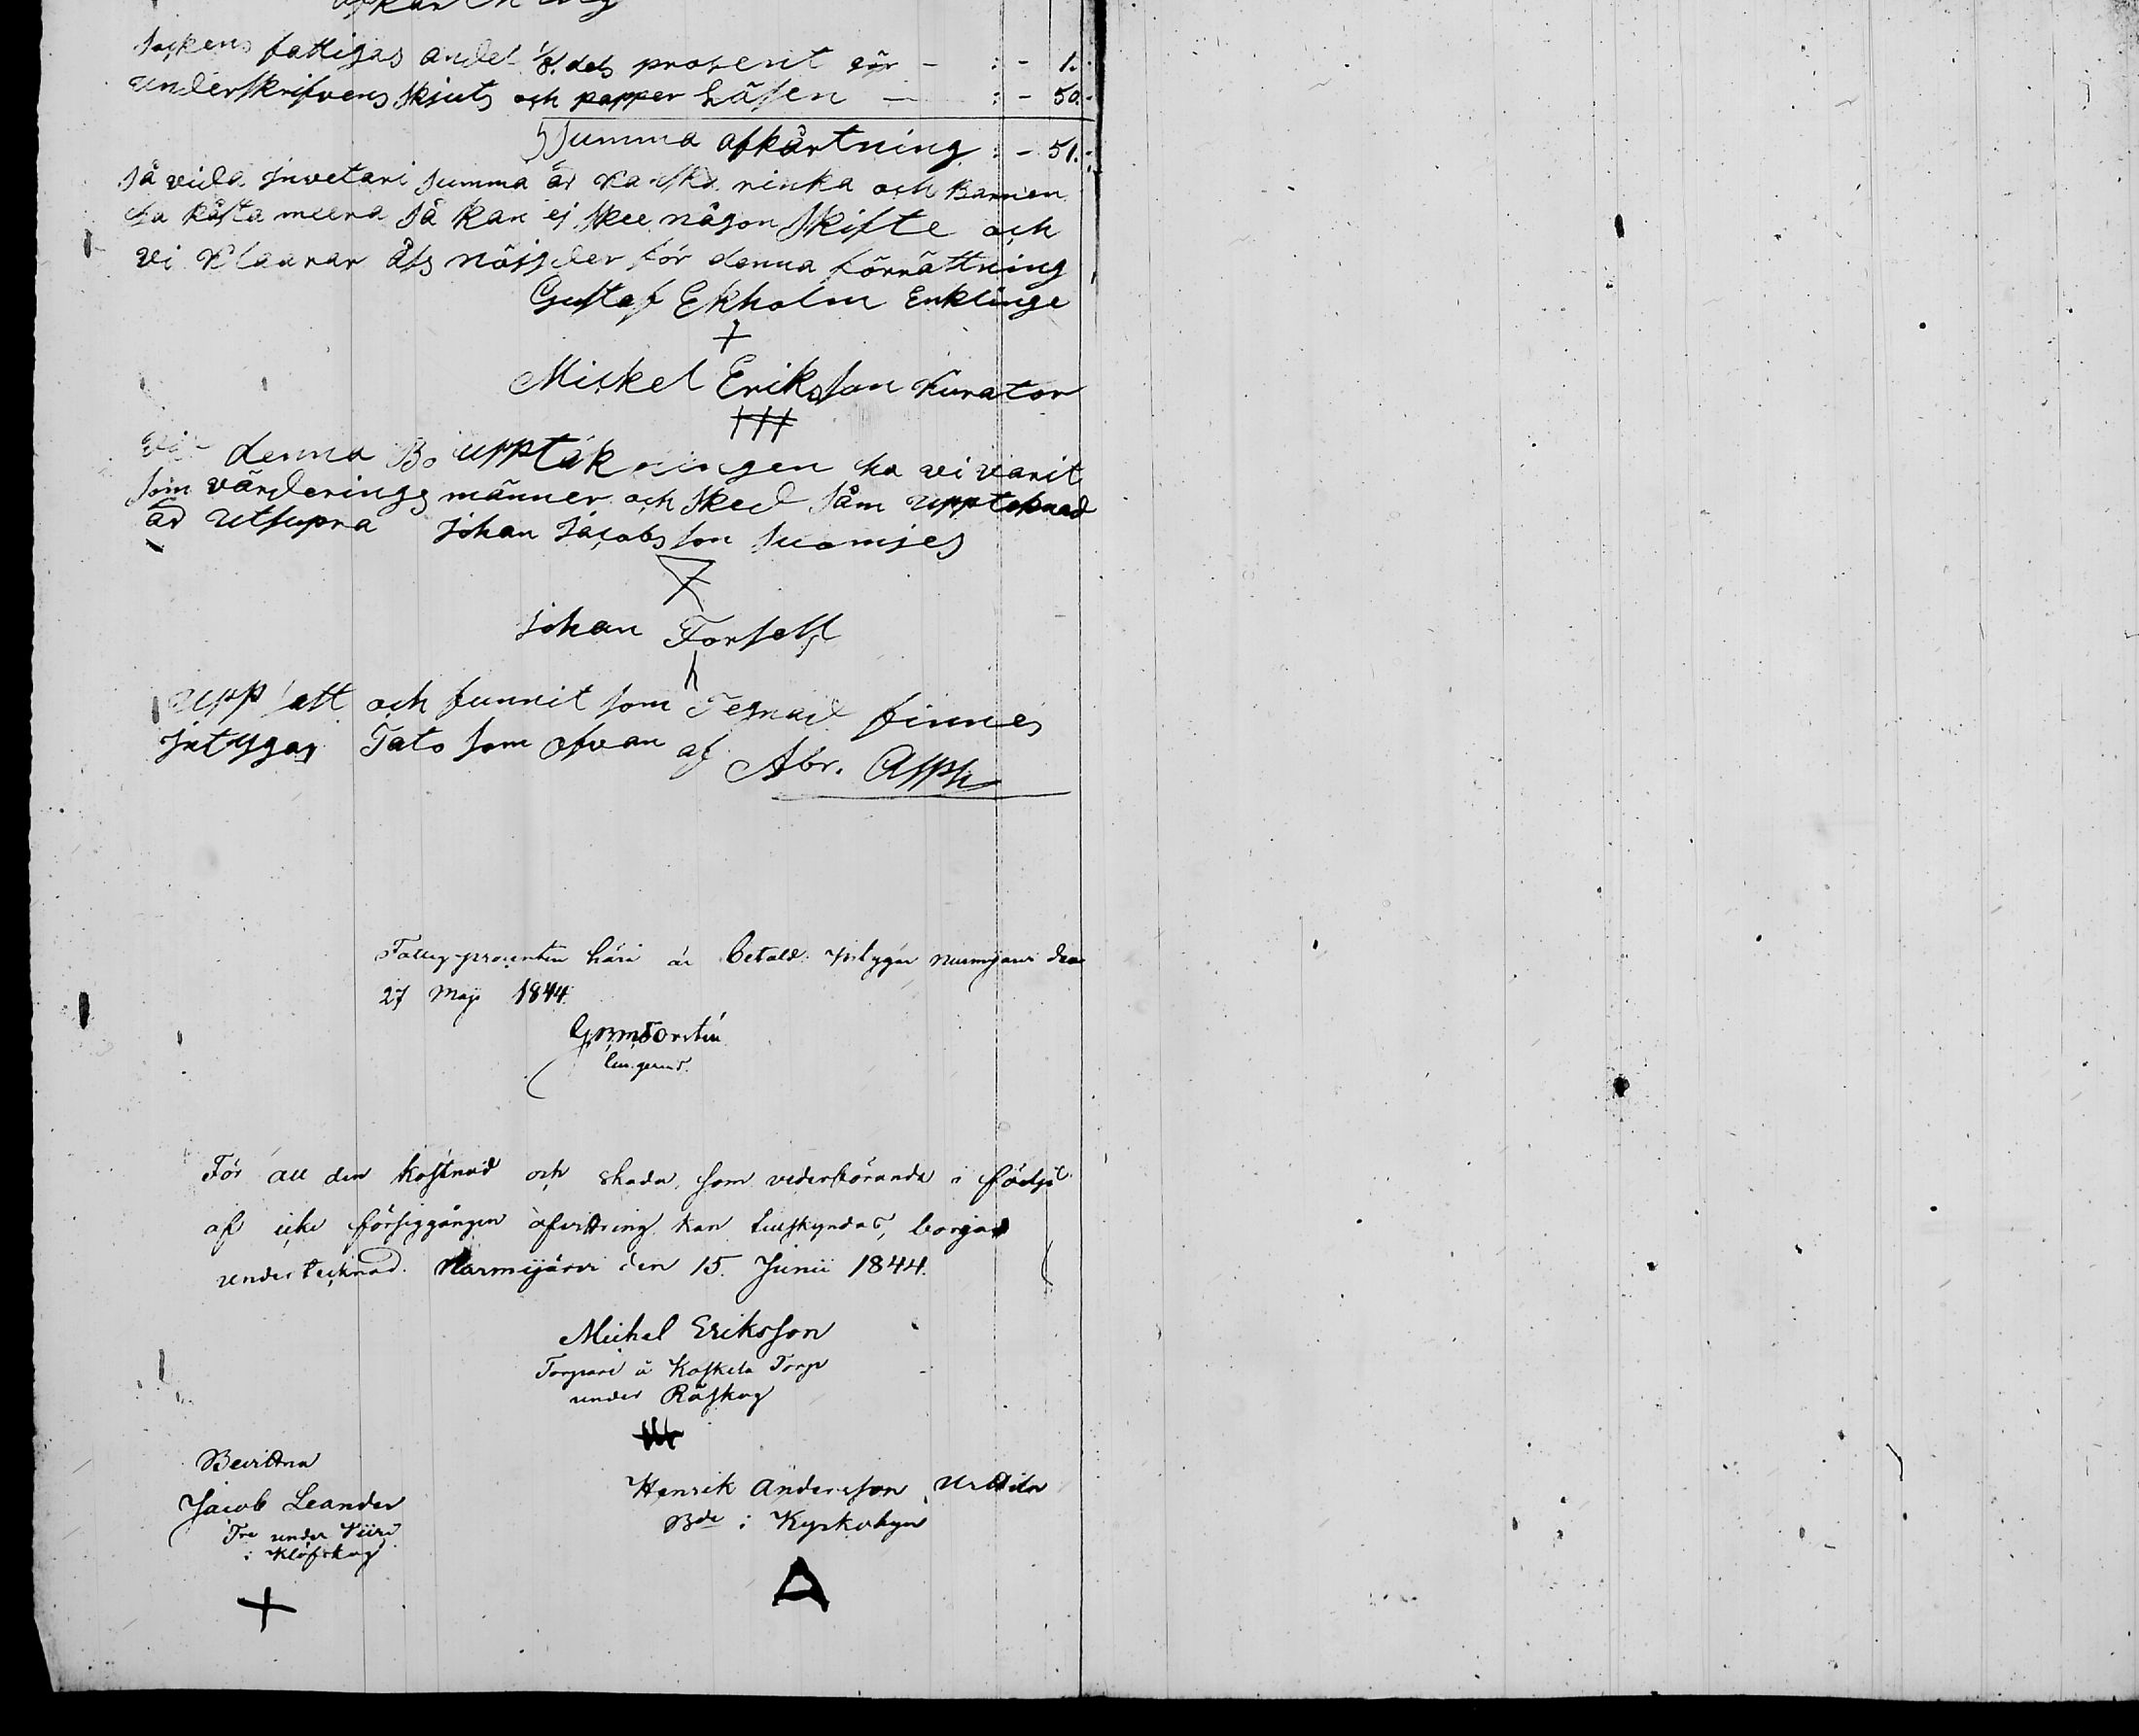 afkortning
Sokens fattigas andel 1/8. dels prosent gör - : - 1.
underskrifvens skjuts och papper lösen - : - 50.
Summa afkårtning : - 51.
så vida Invetari summa är ganska rinka och Barnen
ha kåsta meera så kan ej skee någon skifte och
vi klaarar åss nöjjder för denna förrättning
Gustaf Ekholm Enklinge
+
Mickel Eriksson Kurator
Vi denna Bo upptäkningen ha vi varit
som värderings männer och sked såm uppteknad
är utsupra Johan Jacobsson Suomies
Johan Forsell
Uppsatt och funnit som Tegnad finnes
Intygas Tato som ofvan af Abr. Asph
Fattig procenten häri är betald. intygar Nurmijärvi den
27 Maji 1844.
För all den kostnad och skada, som vederbörande i födljd
af icke försiggången afvittring kan tillskyndas, borgar
undertecknad. Nurmijärvi den 15. Junii 1844.
Michel Eriksson
Torpare å Koskela Torp
under Råskog
Bevittna
Jacob Leander
Tre under Viiri
i Klöfskog
+
Henrik Andersson Uotila
Bde i Kyrkobyn